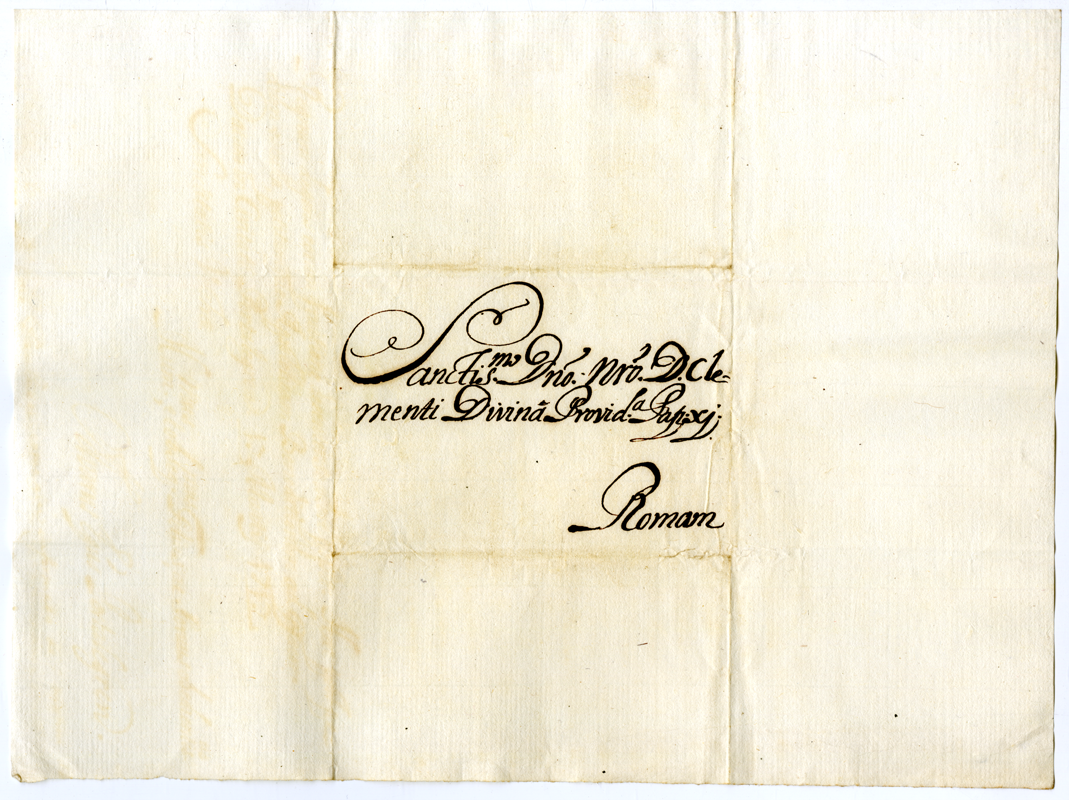 Sanctis.mo Dño. Nrõ. D. Cle-
menti Divinâ Provid.a Pap. xj.
Romam